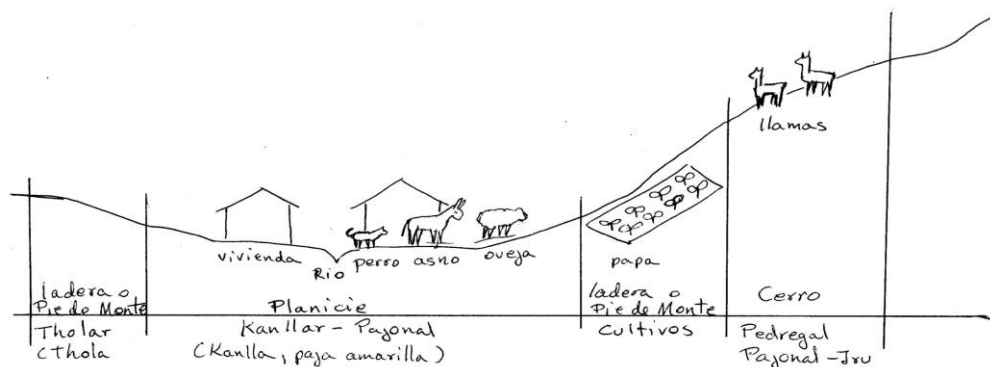 llamas
vivienda
Río
perro asno
oveja
papa
ladera o
Pie de Monte
Planicie
ladera o
Pie de Monte
Cerro
Tholar
(Thola
Kanllar - Pajonal
(Kanlla, paja amarilla)
Cultivos
Pedregal
Pajonal - Iru